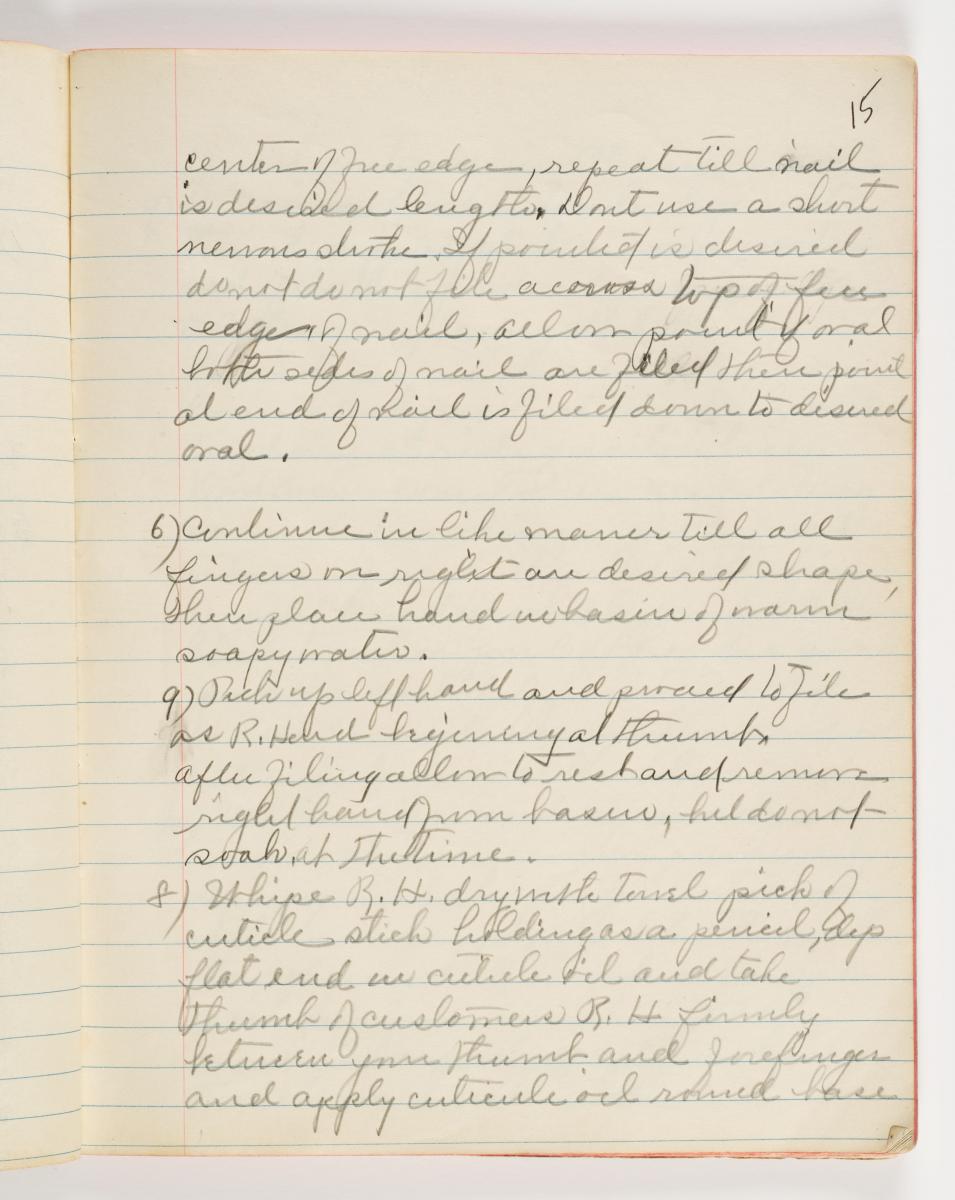 15
center of free edge, repeat till nail
is desired length. Dont use a short
nervous stroke. If pointed is desired
do not do not file acsross top of free
edge of nail, allow point if oral
both sides of nail are filed then point
at end of nail is filed down to desired
oval.
6) Continue in like maner till all
fingers on right are desired shape,
then place hand in basin of warm
soapy water.
9) Pick up left hand and proceed to file
as R. Hand begining at thumb.
after filing allow to rest and remove
right hand from basin, but do not
soak at the time.
8) Whipe R. H. dry with towel pick of
cuticle stick holding as a pencil, dip
flat end in cuticle oil and take
thumb of customers R. H firmly
between your thumb and forefinger
and apply cuticule oil round base